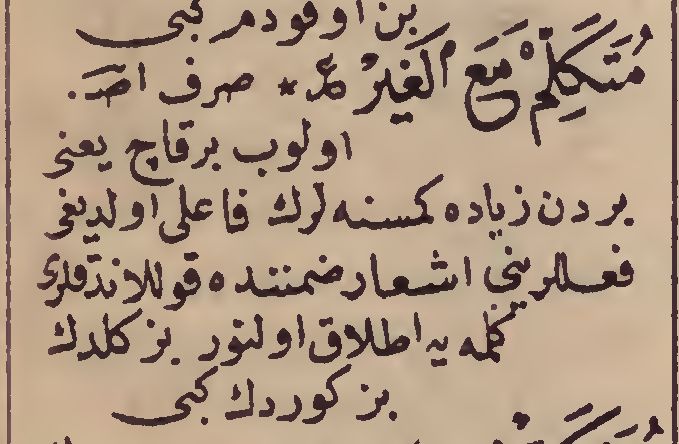 بن اوقودم كبى
مُتَكَلِّمْ مَعَ الْغَيرْ * صرف
اولوب برقاچ يعنى
بردن زياده كمسنه لرك فاعلى اولديغى
فعللرينى اشعار ضمننده قوللاندقلرى
كلمه يه اطلاق اولنور بز كلدك
بز كوردك كبى